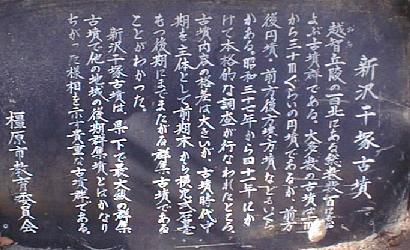 新沢千塚古墳
越智丘陵の一画北にある総数数百基にお
よぶ古墳群である。大多数の古墳は一〇
から三十mくらいの円墳であるが、前方
後円墳・前方後方墳・方墳などもいくら
かある。昭和三十七年から四十一年にか
けて本格的な調査が行なわれたところ、
古墳内容の格差は大きいが、古墳時代中
期を主体として前期末から横穴式石室墓
をもつ後期にまでまたがる群集古墳である
ことがわかった。
新沢千塚古墳は県下で最大級の群集
古墳で他の地域の後期群集墳とはかなり
ちがった様相を示す貴重な古墳群である。
橿原市教育委員会